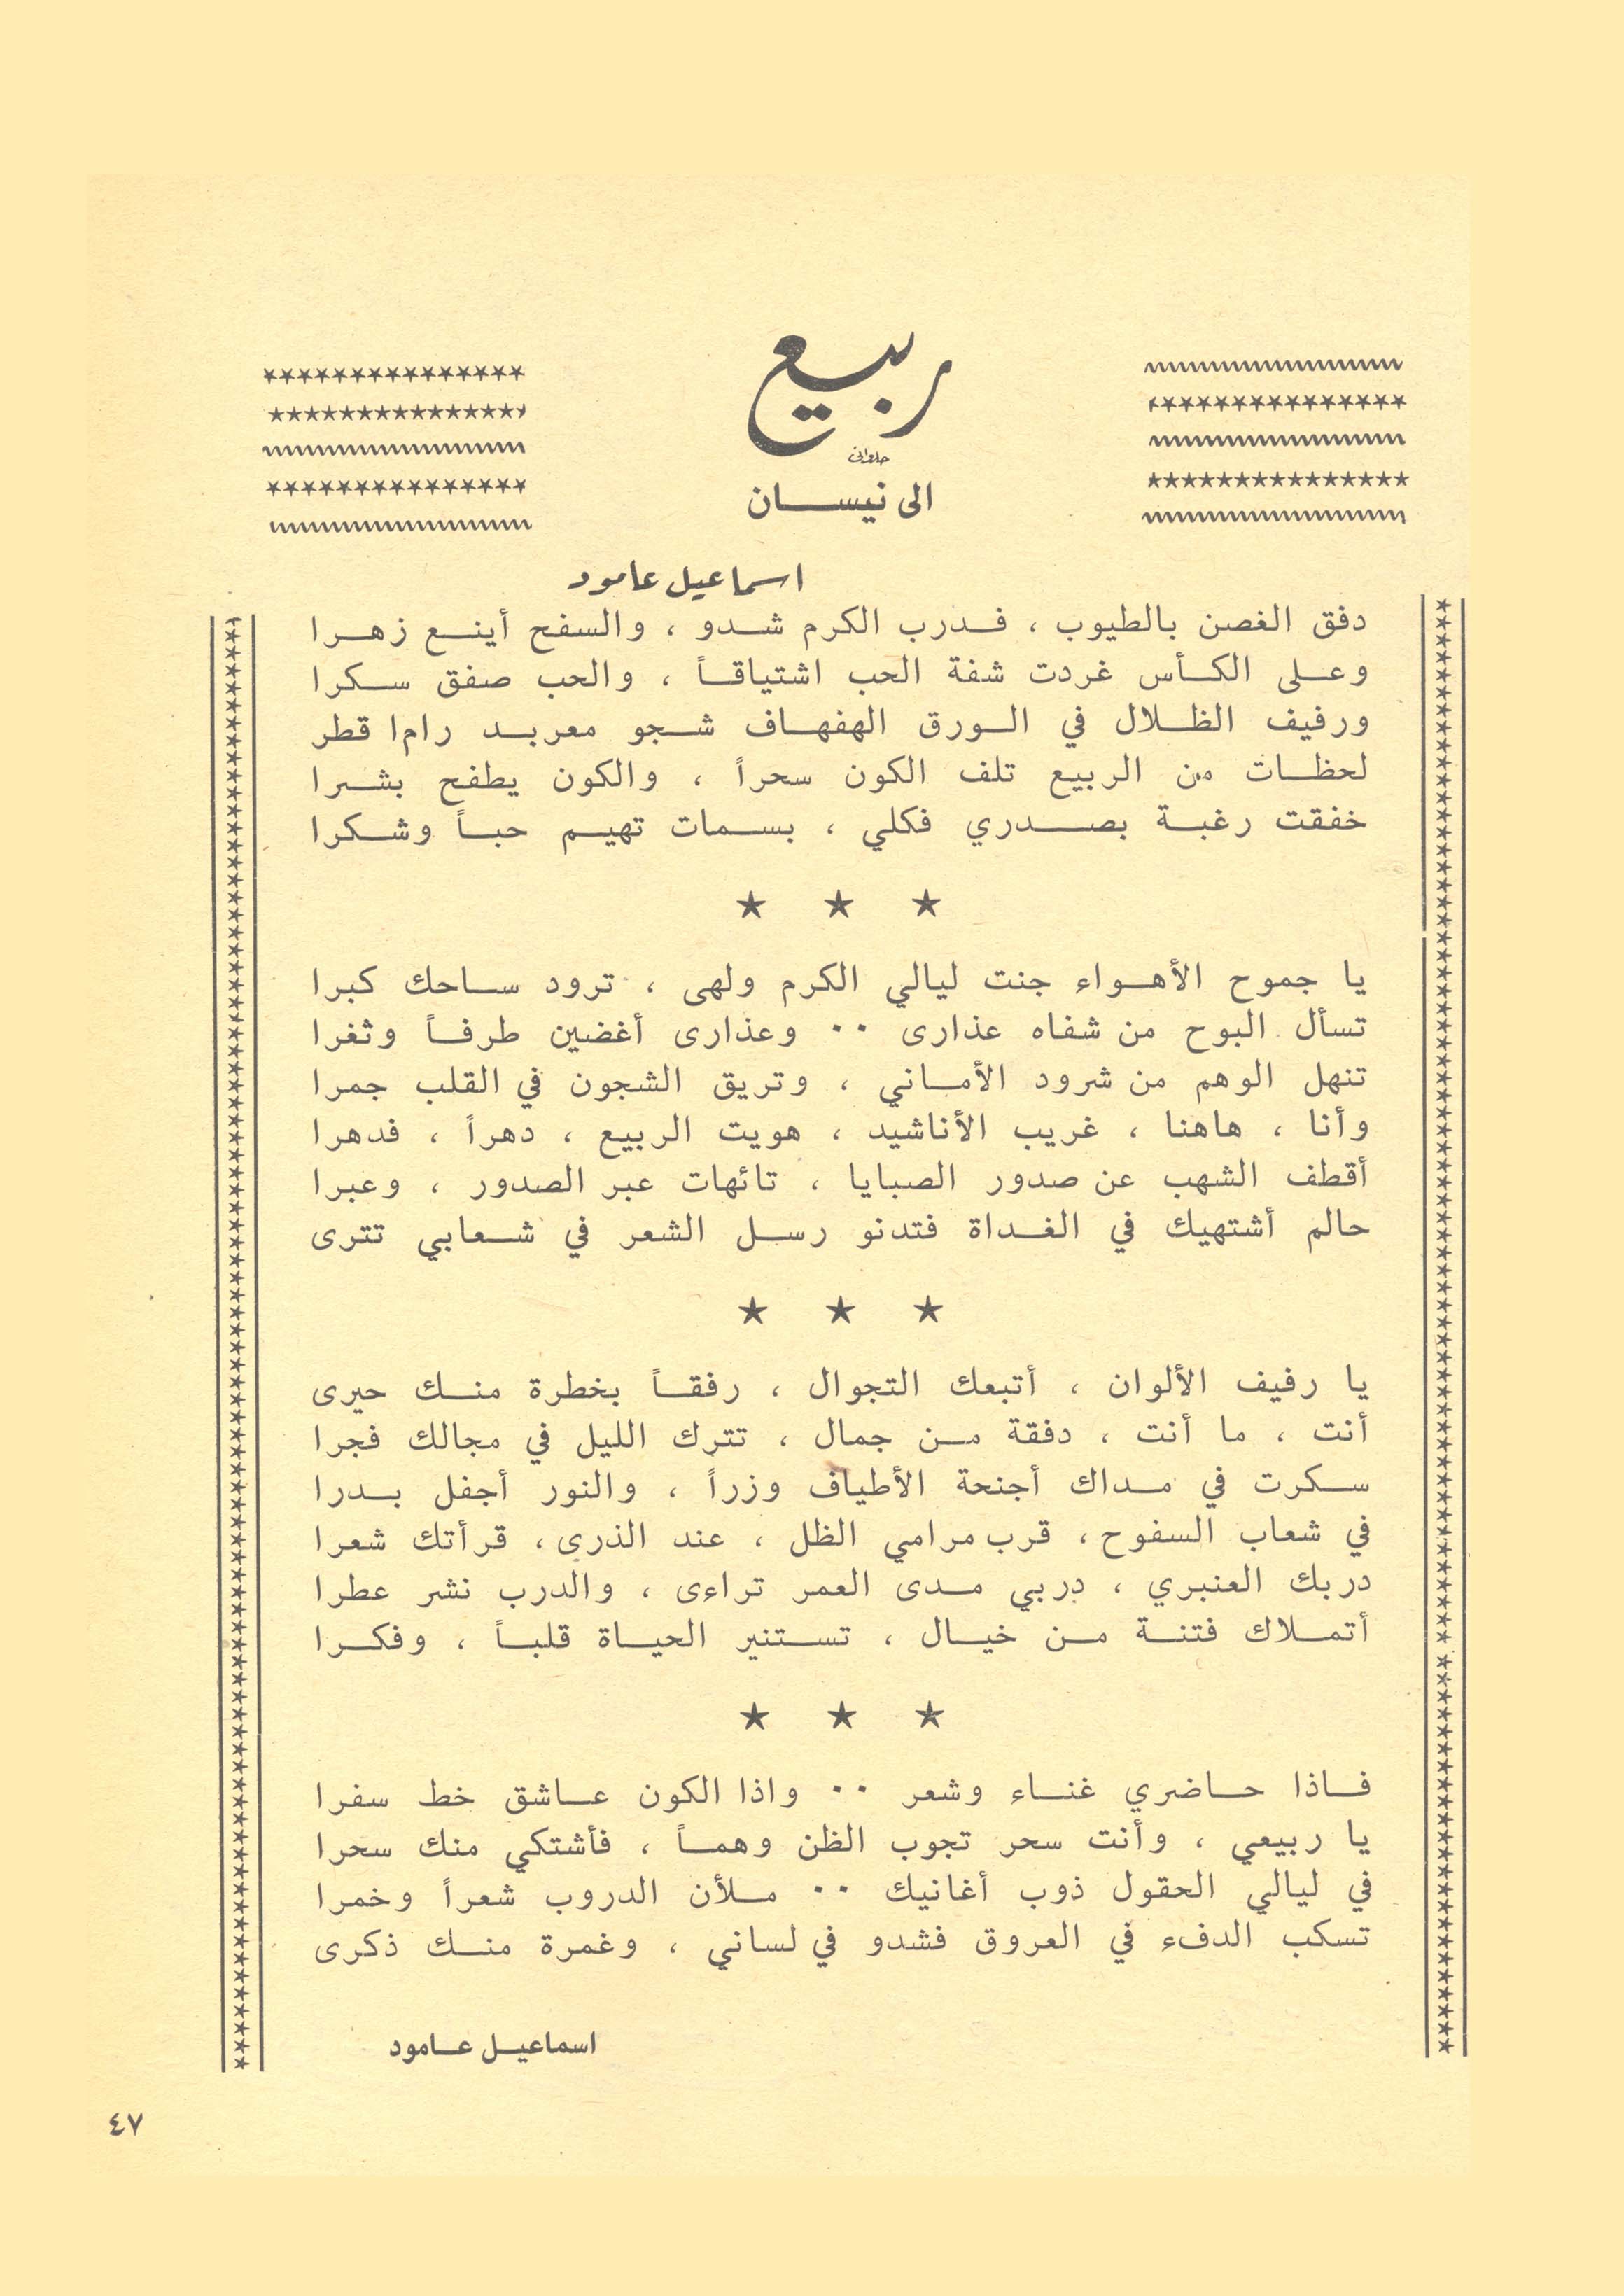 ربيع
حلواني
الى نيسان
اسماعيل عامود
دفق الغصن بالطيوب ، فدرب الكرم شدو ، والسفح أينع زهرا
وعلى الكأس غردت شفة الحب اشتياقاً ، والحب صفق سكرا
ورفيف الظلال في الورق الهفهاف شجو معربد رام قطر
لحظات من الربيع تلف الكون سحراً ، والكون يطفح بشرا
خفقت رغبة بصدري فكلي ، بسمات تهيم حباً وشكرا
★ ★ ★
يا جموح الأهواء جنت ليالي الكرم ولهى ، ترود ساحك كبرا
تسأل البوح من شفاه عذارى ٠٠ وعذارى أغضين طرفاً وثغرا
تنهل الوهم من شرود الأماني ، وتريق الشجون في القلب جمرا
وأنا ، هاهنا ، غريب الأناشيد ، هويت الربيع ، دهراً ، فدهرا
أقطف الشهب عن صدور الصبايا ، تائهات عبر الصدور ، وعبرا
حالم أشتهيك في الغداة فتدنو رسل الشعر في شعابي تترى
★ ★ ★
يا رفيف الألوان ، أتبعك التجوال ، رفقاً بخطرة منك حيرى
أنت ، ما أنت ، دفقة من جمال ، تترك الليل في مجالك فجرا
سكرت في مداك أجنحة الأطياف وزراً ، والنور أجفل بدرا
في شعاب السفوح ، قرب مرامي الظل ، عند الذرى ، قرأتك شعرا
دربك العنبري ، دربي مدى العمر تراءى ، والدرب نشر عطرا
أتملاك فتنة من خيال ، تستنير الحياة قلباً ، وفكرا
★ ★ ★
فاذا حاضري غناء وشعر ٠٠ واذا الكون عاشق خط سفرا
يا ربيعي ، وأنت سحر تجوب الظن وهماً ، فأشتكي منك سحرا
في ليالي الحقول ذوب أغانيك ٠٠ ملأن الدروب شعراً وخمرا
تسكب الدفء في العروق فشدو في لساني ، وغمرة منك ذكرى
اسماعيل عامود
٤٧